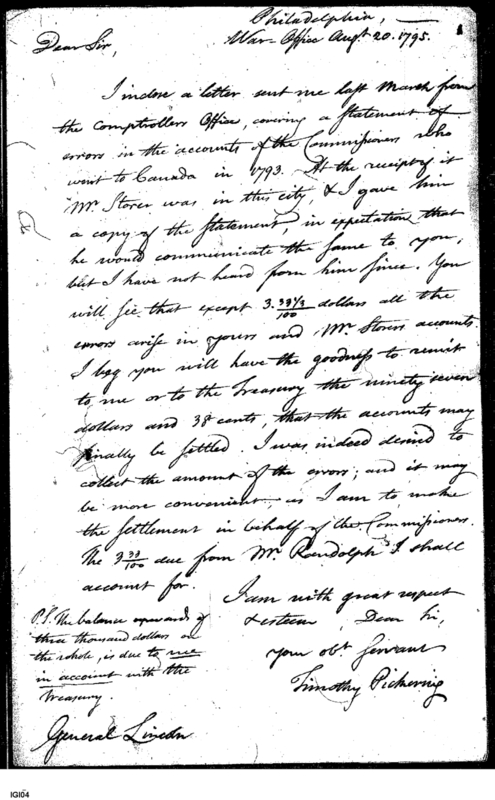 Philadelphia,
War-Office Augt 20. 1795.
Dear Sir,
I inclose a letter sent me last March from
the Comptrollers Office, covering a statement of
errors in the accounts of the Commissioners who
went to Canada in 1793. At the receipt of it
Mr. Storer was in this city, & I gave him
a copy of the statement, in expectation that
he would communicate the same to you,
but I have not heard from him since. You
will see that except 3.33 1/3/100 dollars all the
errors arise in yours and Mr. Storers accounts.
I beg you will have the goodness to remit
to me or to the Treasury the ninety seven
dollars and 38 cents, that the accounts may
finally be settled. I was indeed desired to
collect the amount of the errors; and it may
be more convenient, as I am to make
the settlement in behalf of the Commissioners.
The 3 33/100 due from Mr. Randolph I shall
account for.
I am with great respect
& esteem, Dear Sir,
your obt. servant
Timothy Pickering
P.S. The balance upwards of
three thousand dollars on
the whole, is due to me
in account with the
Treasury.
General Lincoln
IGI04